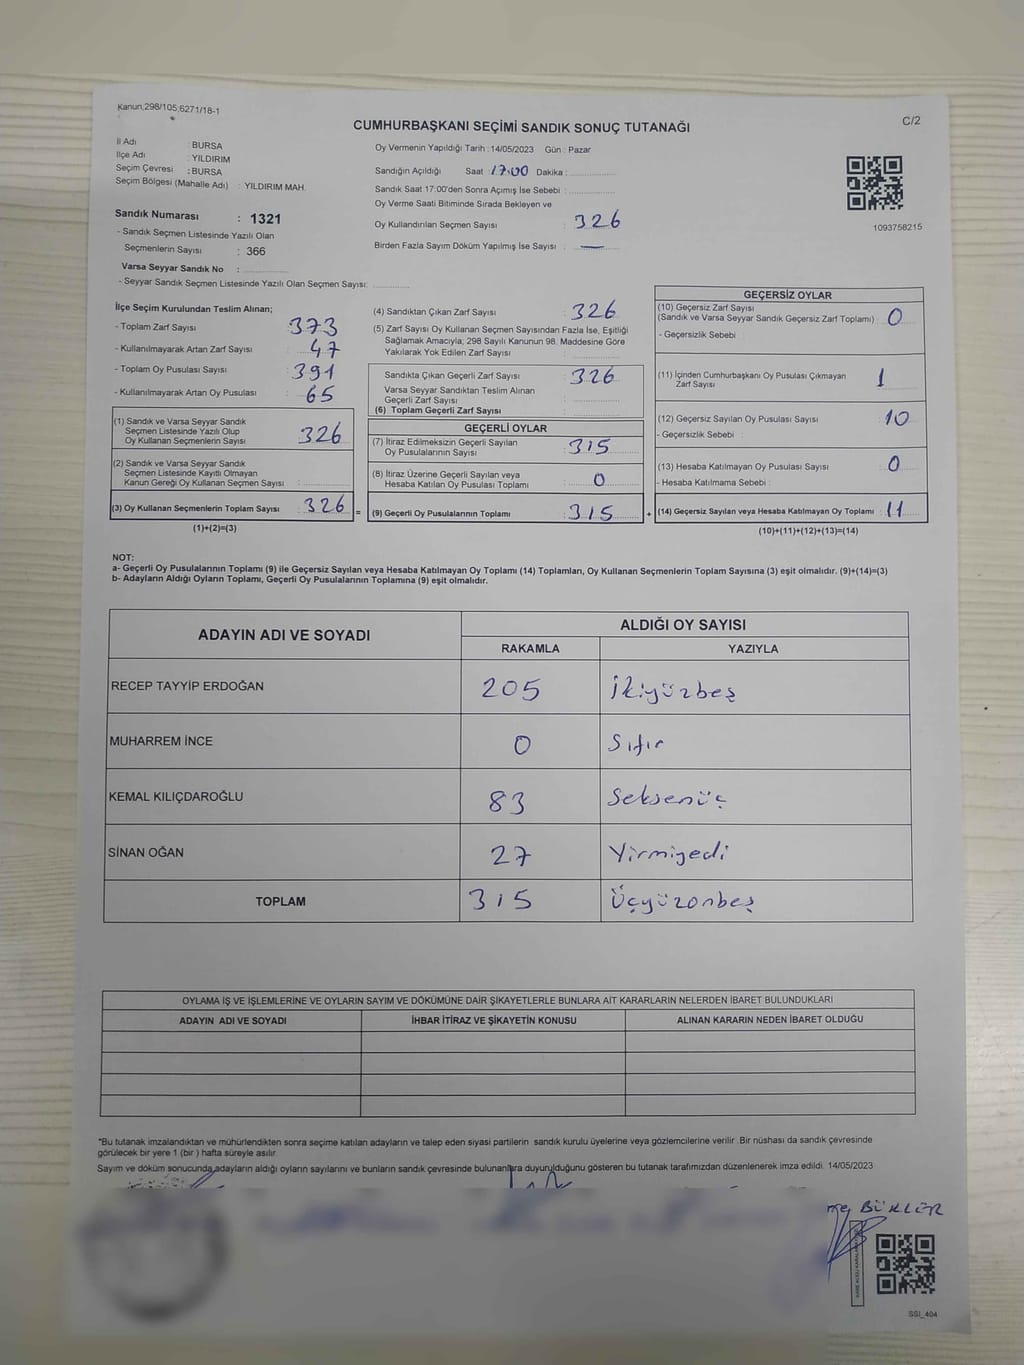 Kanun,298/105;6271/18-1
C/2
CUMHURBAŞKANI SEÇİMİ SANDIK SONUÇ TUTANAĞI
İl Adı : BURSA
İlçe Adı : YILDIRIM
Seçim Çevresi : BURSA
Seçim Bölgesi (Mahalle Adı) : YILDIRIM MAH.
Sandık Numarası : 1321
- Sandık Seçmen Listesinde Yazılı Olan
Seçmenlerin Sayısı : 366
Varsa Seyyar Sandık No :
- Seyyar Sandık Seçmen Listesinde Yazılı Olan Seçmen Sayısı:
Oy Vermenin Yapıldığı Tarih : 14/05/2023 Gün : Pazar
Sandığın Açıldığı Saat : 17:00 Dakika :
Sandık Saat 17:00'den Sonra Açımış İse Sebebi :
Oy Verme Saati Bitiminde Sırada Bekleyen ve
Oy Kullandırılan Seçmen Sayısı : 326
Birden Fazla Sayım Döküm Yapılmış İse Sayısı : —
1093758215
İlçe Seçim Kurulundan Teslim Alınan;
- Toplam Zarf Sayısı : 373
- Kullanılmayarak Artan Zarf Sayısı : 47
- Toplam Oy Pusulası Sayısı : 391
- Kullanılmayarak Artan Oy Pusulası : 65
(1) Sandık ve Varsa Seyyar Sandık
Seçmen Listesinde Yazılı Olup
Oy Kullanan Seçmenlerin Sayısı : 326
(2) Sandık ve Varsa Seyyar Sandık
Seçmen Listesinde Kayıtlı Olmayan
Kanun Gereği Oy Kullanan Seçmen Sayısı :
(3) Oy Kullanan Seçmenlerin Toplam Sayısı : 326
(1)+(2)=(3)
=
(4) Sandıktan Çıkan Zarf Sayısı : 326
(5) Zarf Sayısı Oy Kullanan Seçmen Sayısından Fazla İse, Eşitliği
Sağlamak Amacıyla; 298 Sayılı Kanunun 98. Maddesine Göre
Yakılarak Yok Edilen Zarf Sayısı :
Sandıkta Çıkan Geçerli Zarf Sayısı : 326
Varsa Seyyar Sandıktan Teslim Alınan
Geçerli Zarf Sayısı :
(6) Toplam Geçerli Zarf Sayısı :
GEÇERLİ OYLAR
(7) İtiraz Edilmeksizin Geçerli Sayılan
Oy Pusulalarının Sayısı : 315
(8) İtiraz Üzerine Geçerli Sayılan veya
Hesaba Katılan Oy Pusulası Toplamı : 0
(9) Geçerli Oy Pusulalarının Toplamı : 315
+
GEÇERSİZ OYLAR
(10) Geçersiz Zarf Sayısı
(Sandık ve Varsa Seyyar Sandık Geçersiz Zarf Toplamı) : 0
- Geçersizlik Sebebi
(11) İçinden Cumhurbaşkanı Oy Pusulası Çıkmayan
Zarf Sayısı : 1
(12) Geçersiz Sayılan Oy Pusulası Sayısı : 10
- Geçersizlik Sebebi :
(13) Hesaba Katılmayan Oy Pusulası Sayısı : 0
- Hesaba Katılmama Sebebi :
(14) Geçersiz Sayılan veya Hesaba Katılmayan Oy Toplamı : 11
(10)+(11)+(12)+(13)=(14)
NOT:
a- Geçerli Oy Pusulalarının Toplamı (9) ile Geçersiz Sayılan veya Hesaba Katılmayan Oy Toplamı (14) Toplamları, Oy Kullanan Seçmenlerin Toplam Sayısına (3) eşit olmalıdır. (9)+(14)=(3)
b- Adayların Aldığı Oyların Toplamı, Geçerli Oy Pusulalarının Toplamına (9) eşit olmalıdır.
ADAYIN ADI VE SOYADI
ALDIĞI OY SAYISI
RAKAMLA YAZIYLA
RECEP TAYYİP ERDOĞAN 205 İkiyüzbeş
MUHARREM İNCE 0 Sıfır
KEMAL KILIÇDAROĞLU 83 Seksenüç
SİNAN OĞAN 27 Yirmiyedi
TOPLAM 315 Üçyüzonbeş
OYLAMA İŞ VE İŞLEMLERİNE VE OYLARIN SAYIM VE DÖKÜMÜNE DAİR ŞİKAYETLERLE BUNLARA AİT KARARLARIN NELERDEN İBARET BULUNDUKLARI
ADAYIN ADI VE SOYADI İHBAR İTİRAZ VE ŞİKAYETİN KONUSU ALINAN KARARIN NEDEN İBARET OLDUĞU
*Bu tutanak imzalandıktan ve mühürlendikten sonra seçime katılan adayların ve talep eden siyasi partilerin sandık kurulu üyelerine veya gözlemcilerine verilir. Bir nüshası da sandık çevresinde
görülecek bir yere 1 (bir ) hafta süreyle asılır.
Sayım ve döküm sonucunda adayların aldığı oyların sayılarını ve bunların sandık çevresinde bulunanlara duyurulduğunu gösteren bu tutanak tarafımızdan düzenlenerek imza edildi. 14/05/2023
BÜKLER
SSI_404